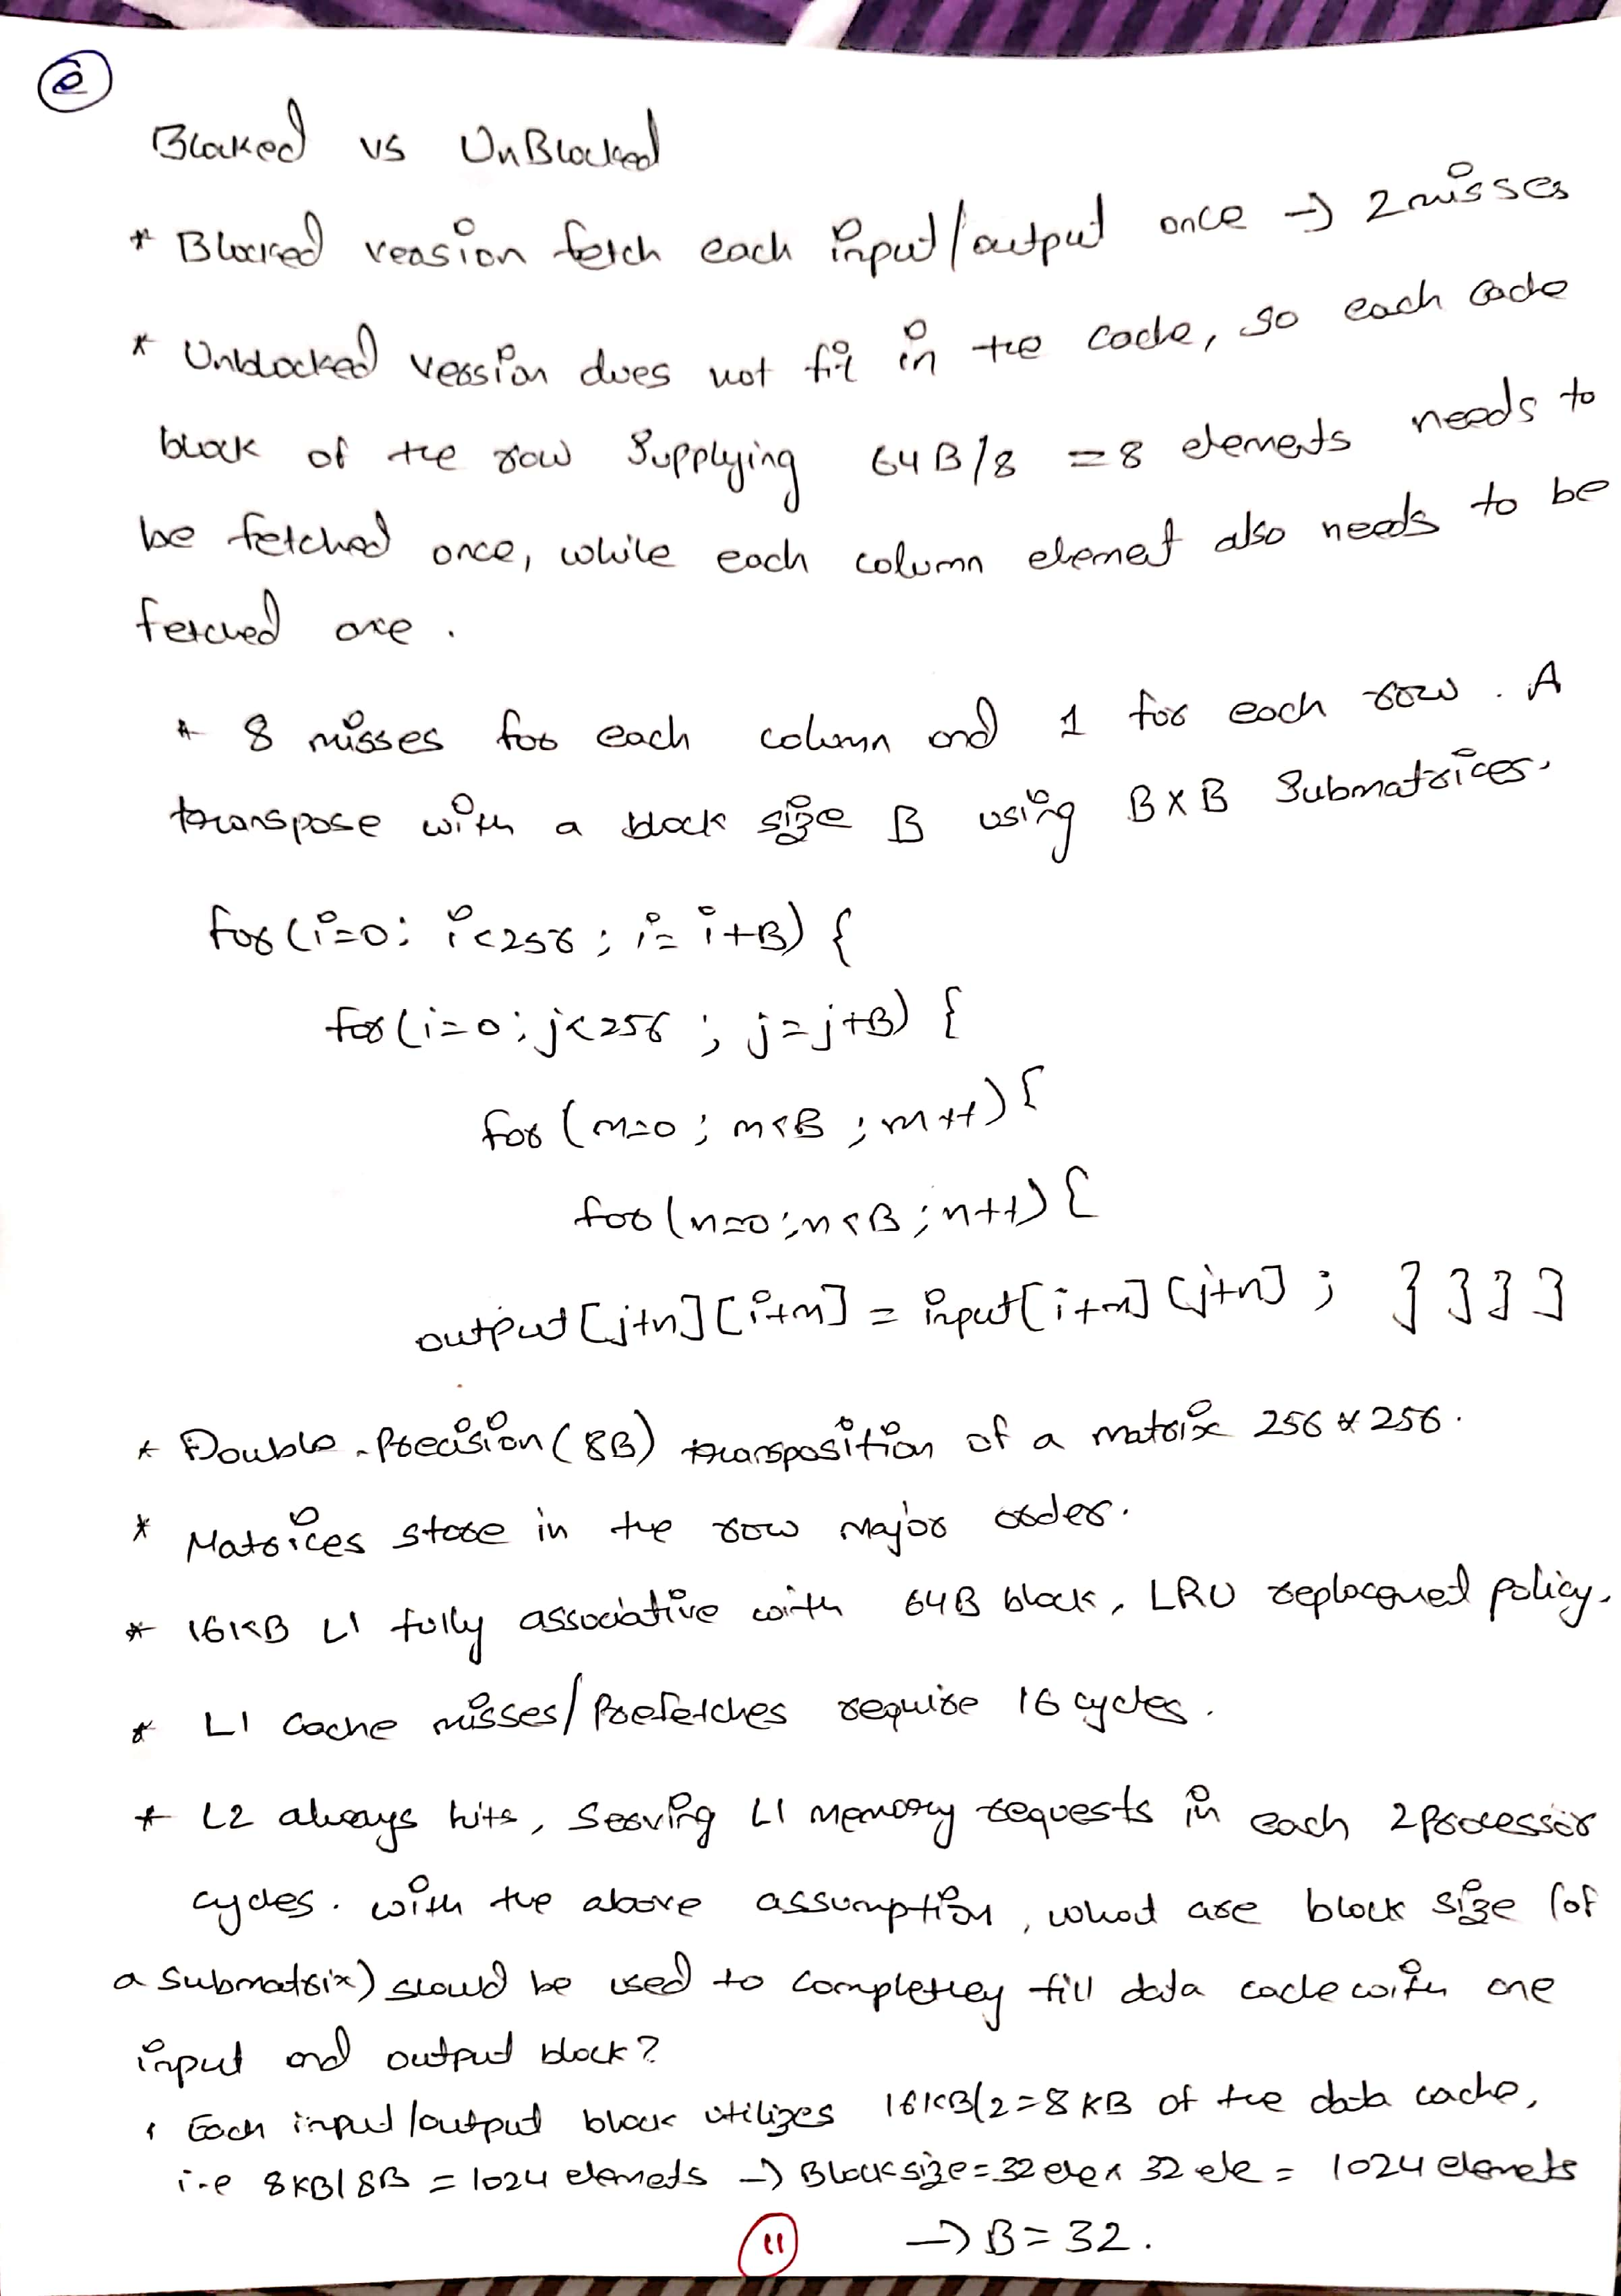 e
Blocked vs UnBlocked
* Blocked version fetch each input/output once → 2 misses
* Unblocked version dues not fit in the cache, so each cache
block of the row Supplying 64B/8 = 8 elements needs to
be fetched once, while each column elemet also needs to be
fetched once.
* 8 misses for each column and 1 for each row. A
transpose with a block size B using BXB Submatrices.
for(i=0; i<256; i= i+B) {
for(i=0; j<256; j=j+B) {
for(m=0; m<B; m++) {
for(n=0; n<B; n++) {
output[j+n][i+m] = input[i+m][j+n]; }}}}
* Double-Precision (8B) transposition of a matrix 256*256.
* Matrices store in the row major order.
* 16KB L1 fully associative with 64B block, LRU replacement policy.
* L1 Cache misses/Prefetches require 16 cycles.
* L2 always hits, Serving L1 memory requests in each 2 Processor
cycles. with the above assumption, what are block size (of
a submatrix) should be used to completley fill data cache with one
input and output block?
* Each input/output block utilizes 16KB/2=8KB of the data cache,
i.e 8KB/8B = 1024 elemets → Block size=32 ele x 32 ele = 1024 elemets
→ B=32.
11